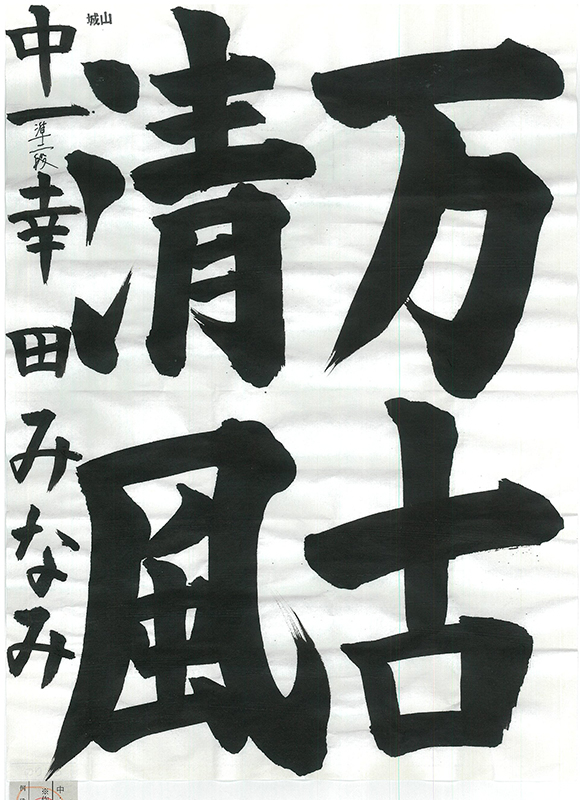 万古
清風
城山
中一 準二段 幸田みなみ
中
※